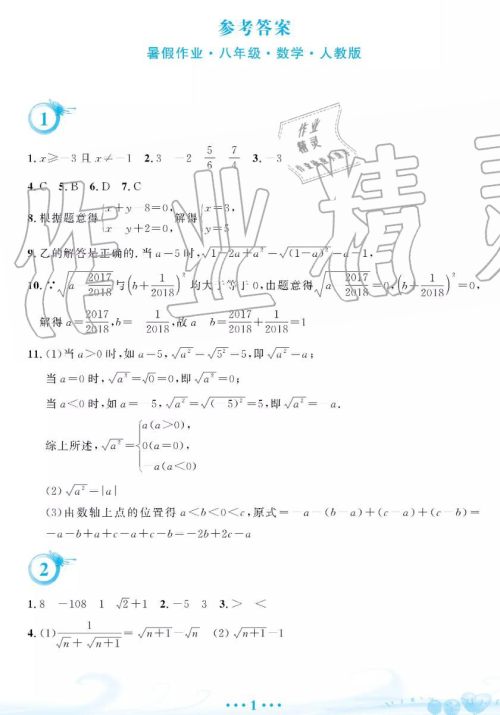 参考答案
暑假作业·八年级·数学·人教版
1
1. x≥-3且x≠-1 2. 3 -2 5/6 7/4 3. -3
4. C 5. B 6. D 7. C
8. 根据题意得{x+y 8=0, x y+2=0, 解得{x=3, y=5
9. 乙的解答是正确的. 当a-5时, √(1-2a+a²)-√((1-a)²)-a-1,
10. ∵√(a 2017/2018)与(b+1/2018)²均大于等于0, 由题意得√(a 2017/2018)=0, (b+1/2018)²=0,
解得a=2017/2018, b= 1/2018, 故a b=2017/2018+1/2018=1
11. (1)当a>0时, 如a-5, √a²-√5²-5, 即√a²-a;
当a=0时, √a²=√0=0, 即√a²=0;
当a<0时, 如a= 5, √a²=√(-5)²=5, 即√a²= a.
综上所述, √a²={a(a>0), 0(a=0), -a(a<0)
(2)√a²-|a|
(3)由数轴上点的位置得a<b<0<c, 原式=-a-(b-a)+(c-a)+(c-b)=
-a-b+a+c-a+c-b=-2b+2c-a
2
1. 8 -108 1 √2+1 2. -5 3 3. > <
4. (1) 1/(√n+√(n+1))=√(n+1)-√n (2)√(n+1)-1
1
作业精灵
作业精灵